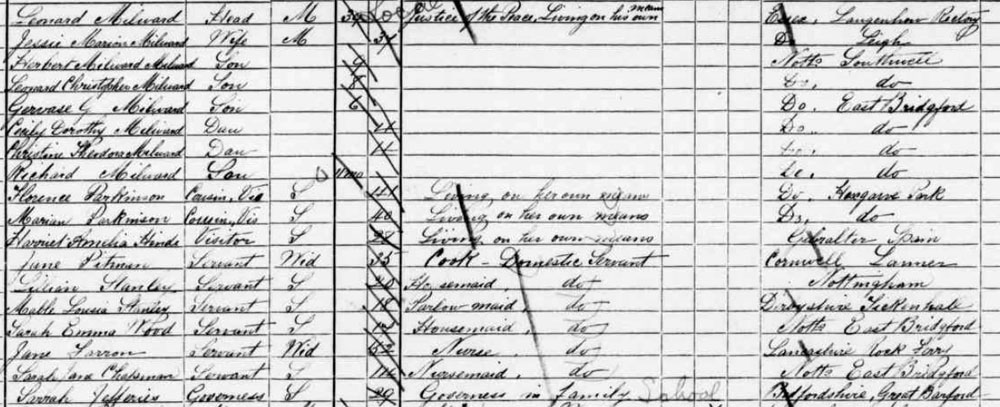 Leonard Milward Head M 39 Justice of the Peace, Living on his own means Essex, Langenhoe Rectory
Jessie Marion Milward Wife M 37 Do Leigh
Herbert Milward Milward Son 9 Notts Southwell
Leonard Christopher Milward Son 8 do. do
Gervase G Milward Son 6 Do. East Bridgford
Cecily Dorothy Milward Dau Do.. do
Christine Theodora Milward Dau do
Richard Milward Son mo Do. do
Florence Parkinson Cousin, Vis S 41 Living on her own means Do Park
Marian Parkinson Cousin, Vis S 40 Living on her own means Do, do
Harriet Amelia Hinde Visitor S 28 Living on her own means Gibralter Spain
Jane Pitman Servant Wid 55 Cook - Domestic Servant Cornwell Lanner
Lillian Stanley Servant S 20 Housemaid, do Nottingham
Mable Lousia Stanley Servant S 18 Parlow maid, do Derbyshire Tickenhale
Sarah Emma Wood Servant S Housemaid, do Notts East Bridgford
Jane Farron Servant Wid 52 Nurse do Lancashire Rock Ferry
Sarah Jane Chapman Servant S Nursemaid, do Notts East Bridgford
Sarrah Jefferies Governess S 29 Governess in Family School Bedfordshire, Great Barford